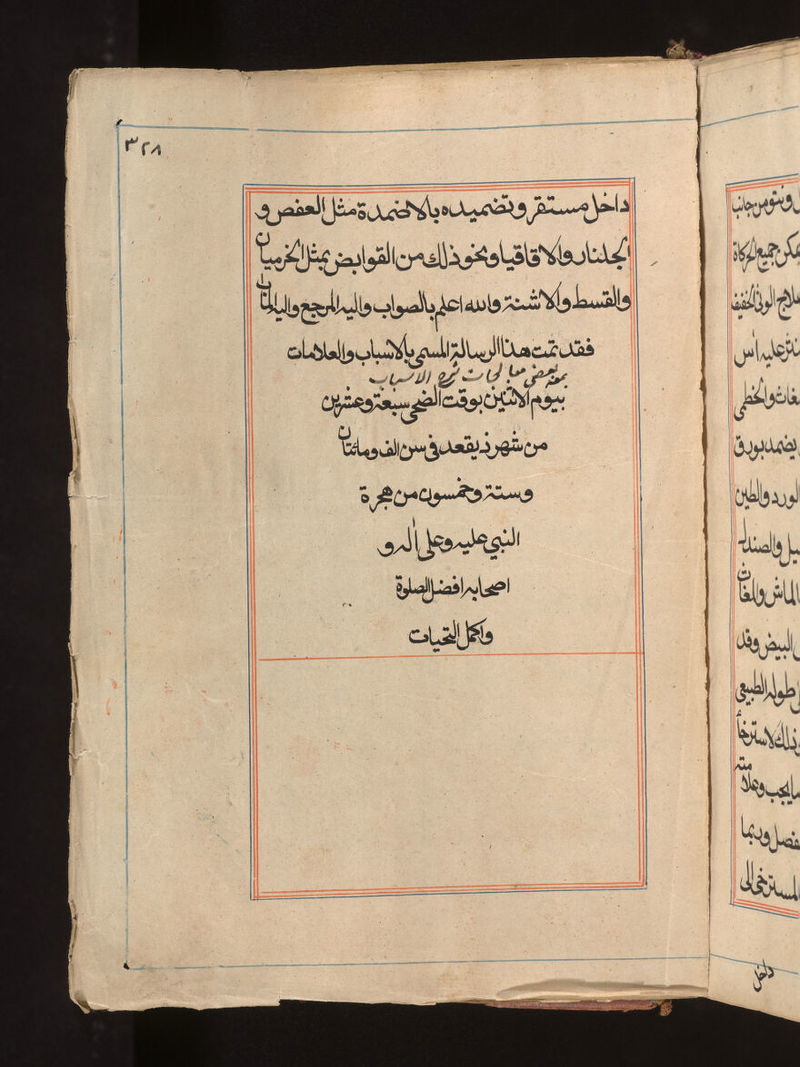 ٣٢٨
داخل مستقره وتضميده بالاضمدة مثل العفص و
الجلنار والاقاقيا ونحو ذلك من القوابض بمثل الخرميان
والقسط والاشنة والله اعلم بالصواب واليه المرجع والمآب
فقد تمت هذا الرسالة المسمى بالاسباب والعلامات
معالجات شرح الاسباب
بيوم الاثنين بوقت الضحى سبعة وعشرين
من شهر ذيقعد في سن الف ومائتان
وستة وخمسون من هجرة
النبي عليه وعلى آله و
اصحابه افضل الصلوة
واكمل التحيات
ونتو من جانب
يمكن جميع الحركاة
علاج الوثى الخفيف
عليه اس
والخطمى
يضمد بورق
الورد والطين
والصندل
الماش والمغاث
البيض وقد
طوله الطبيعى
ذلك لاسترخاء
ما يجب وعلا
متہ
وربما
المسترخى الى
داخل